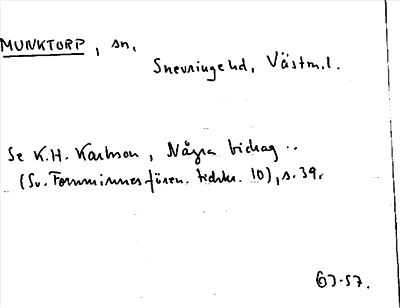 MUNKTORP, sn,
Snevringe hd, Västm.l.
Se K.H. Karlsson, Några bidrag..
(Sv. Fornminnesfören. tidskr. 10), s. 39.
63-57.